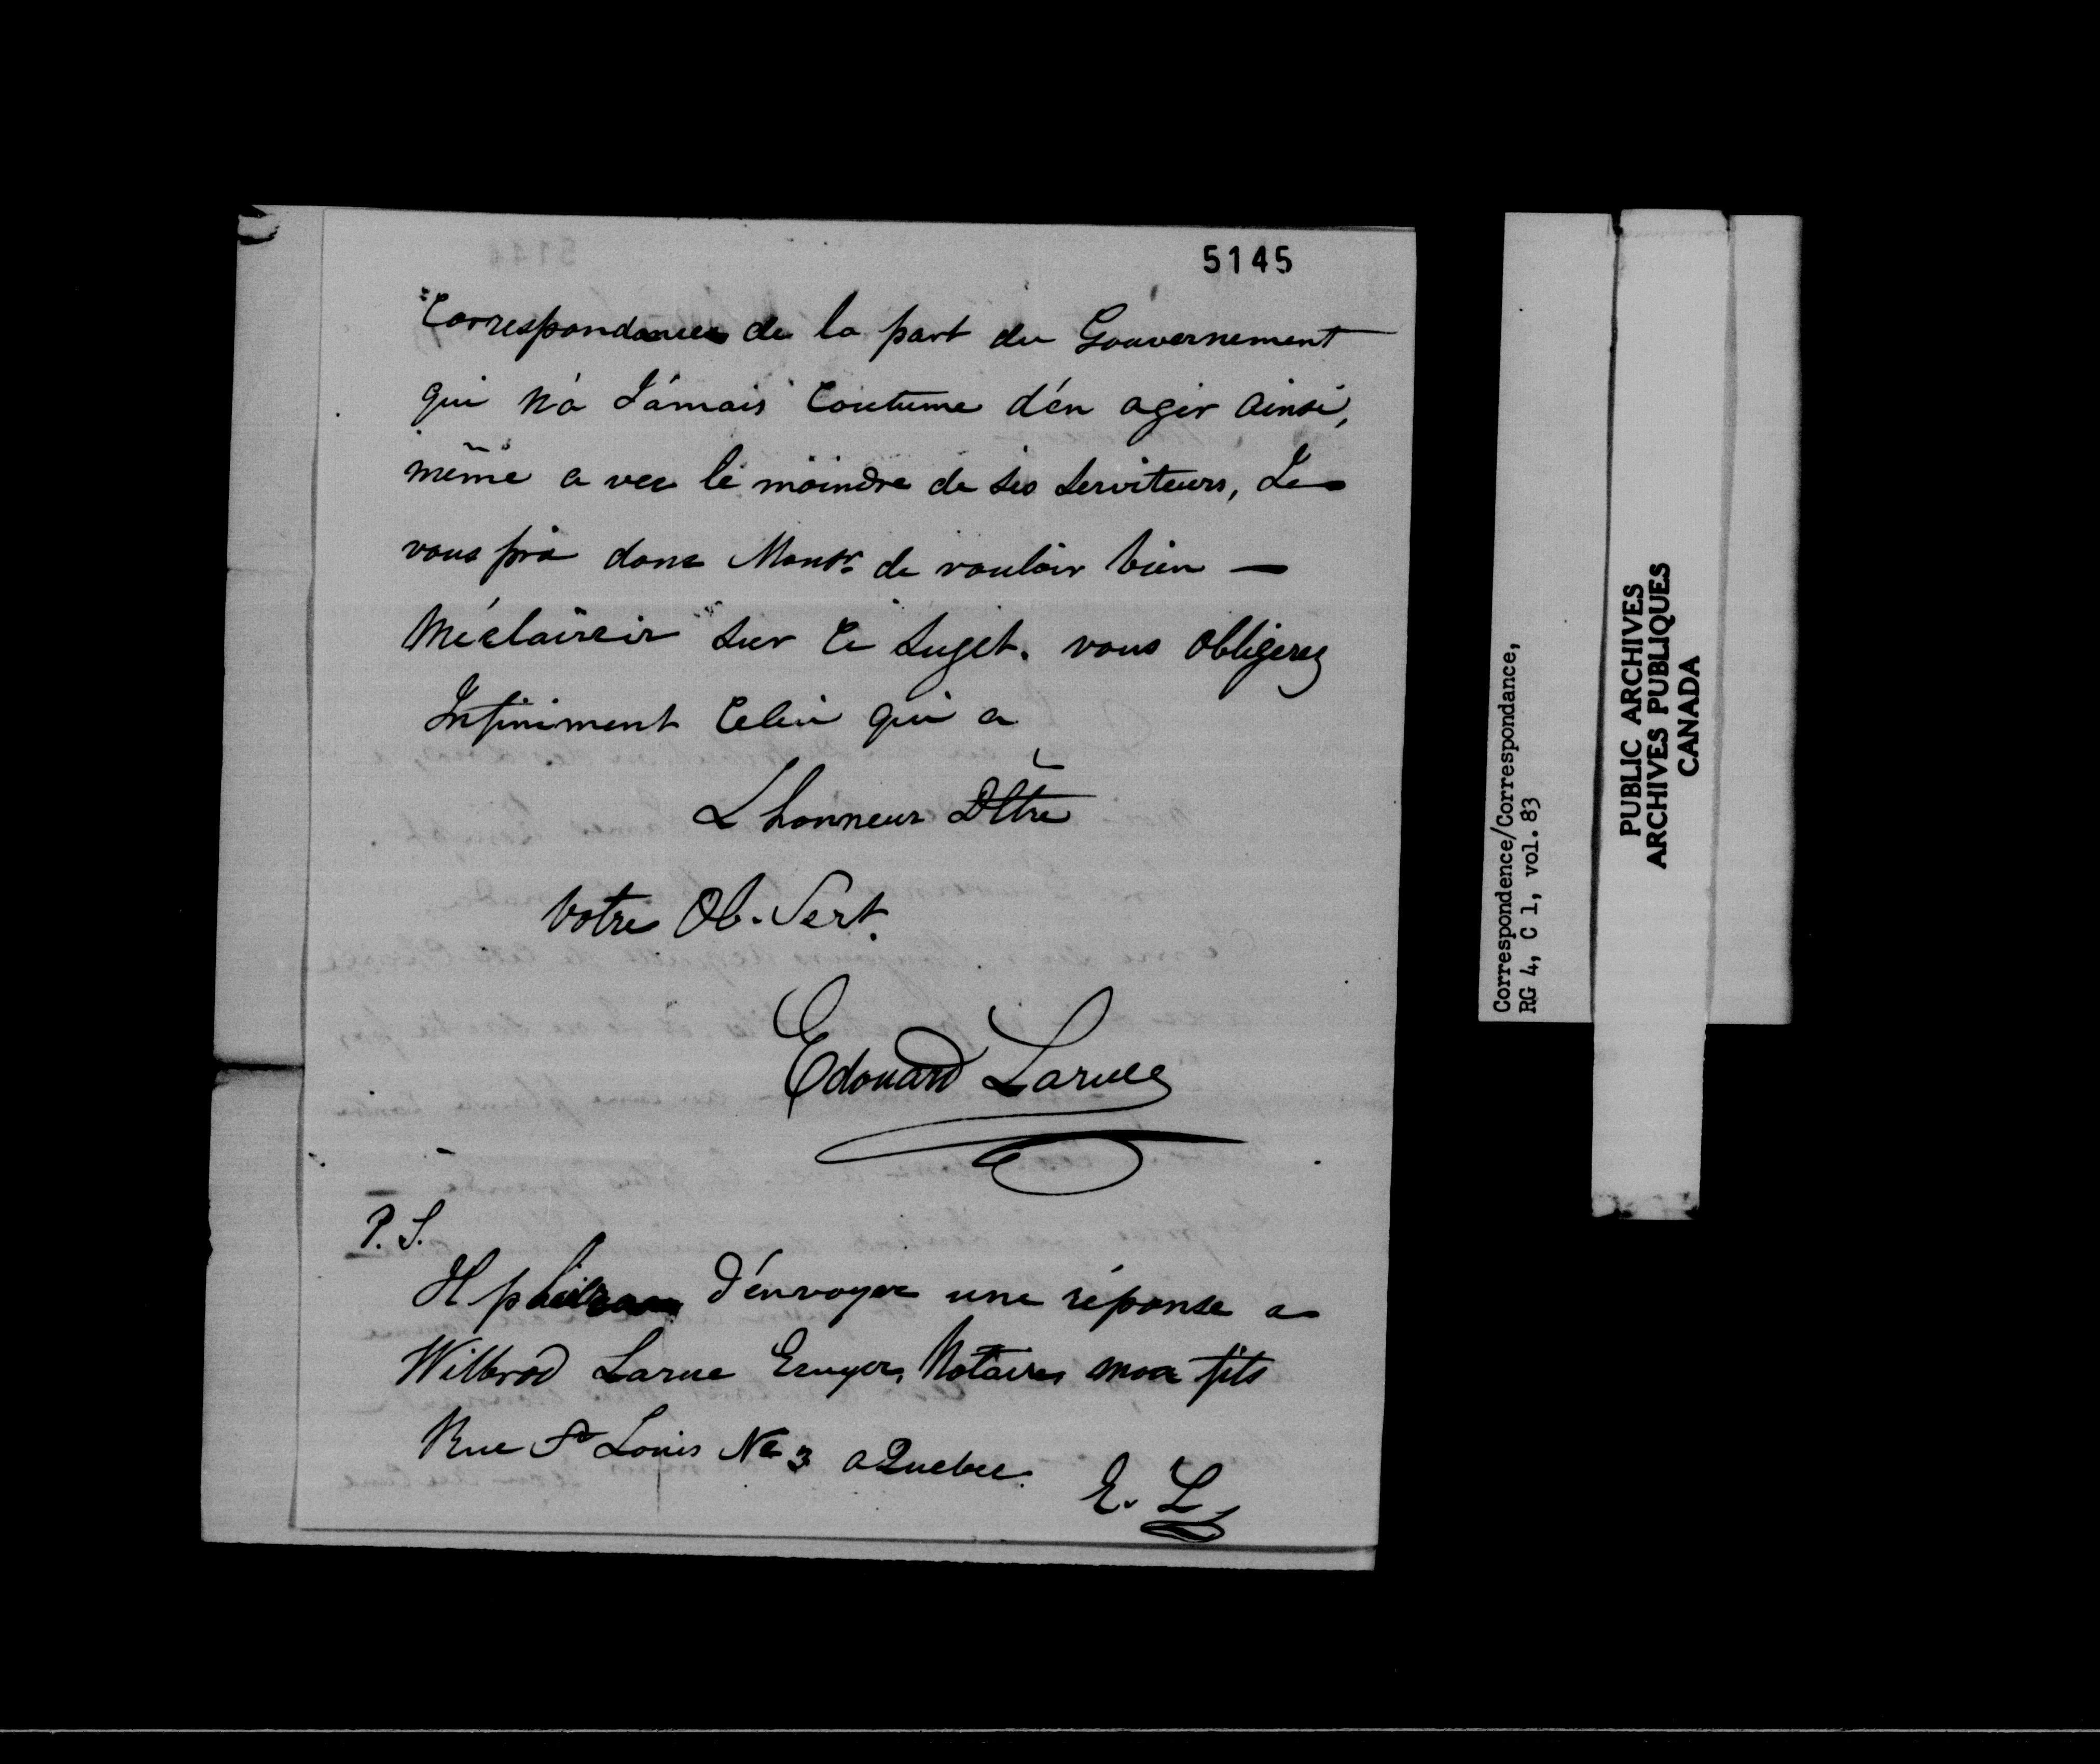 5145
Correspondances de la part du Gouvernement
qui n'a Jámais Coutume d'en agir ainsi,
même a vec le moindre de ses serviteurs, Je
vous prie donc Monsr. de vouloir bien —
M'éclaircir sur Ce suget. vous obligerez
Infiniment Celui qui a
L honneur D'Etre
Votre Ob. Sert.
Edouard Larue
P. S.
Il d'envoyer une réponse a
Wilbrod Larue Ecuyer, Notaire mon fils
Rue St Louis No 3 a Quebec.
E. L
Correspondence/Correspondance,
RG 4, C 1, vol. 83
PUBLIC ARCHIVES
ARCHIVES PUBLIQUES
CANADA